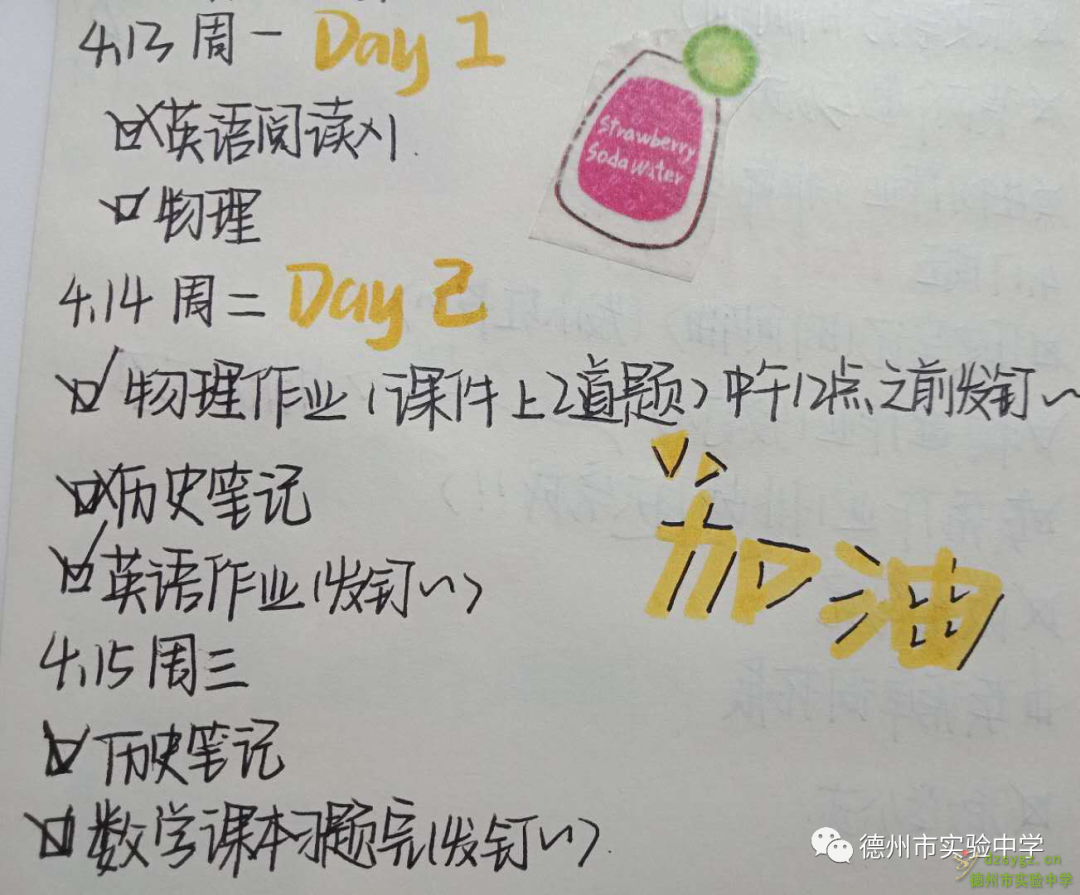 4.13 周一 Day 1
英语阅读×1.
物理
Strawberry
Soda Water
4.14 周二 Day 2
物理作业(课件上2道题)中午12点之前发钉~
历史笔记
英语作业(发钉~)
加油
4.15 周三
历史笔记
数学课本习题完(发钉~)
德州市实验中学
dzsygz.cn
德州市实验中学